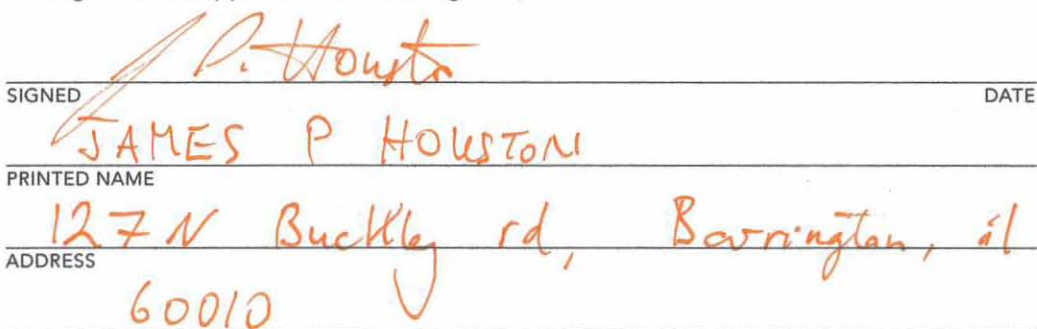 J P. Houston
SIGNED DATE
JAMES P HOUSTON
PRINTED NAME
127 N Buckley rd, Barrington, il
ADDRESS
60010